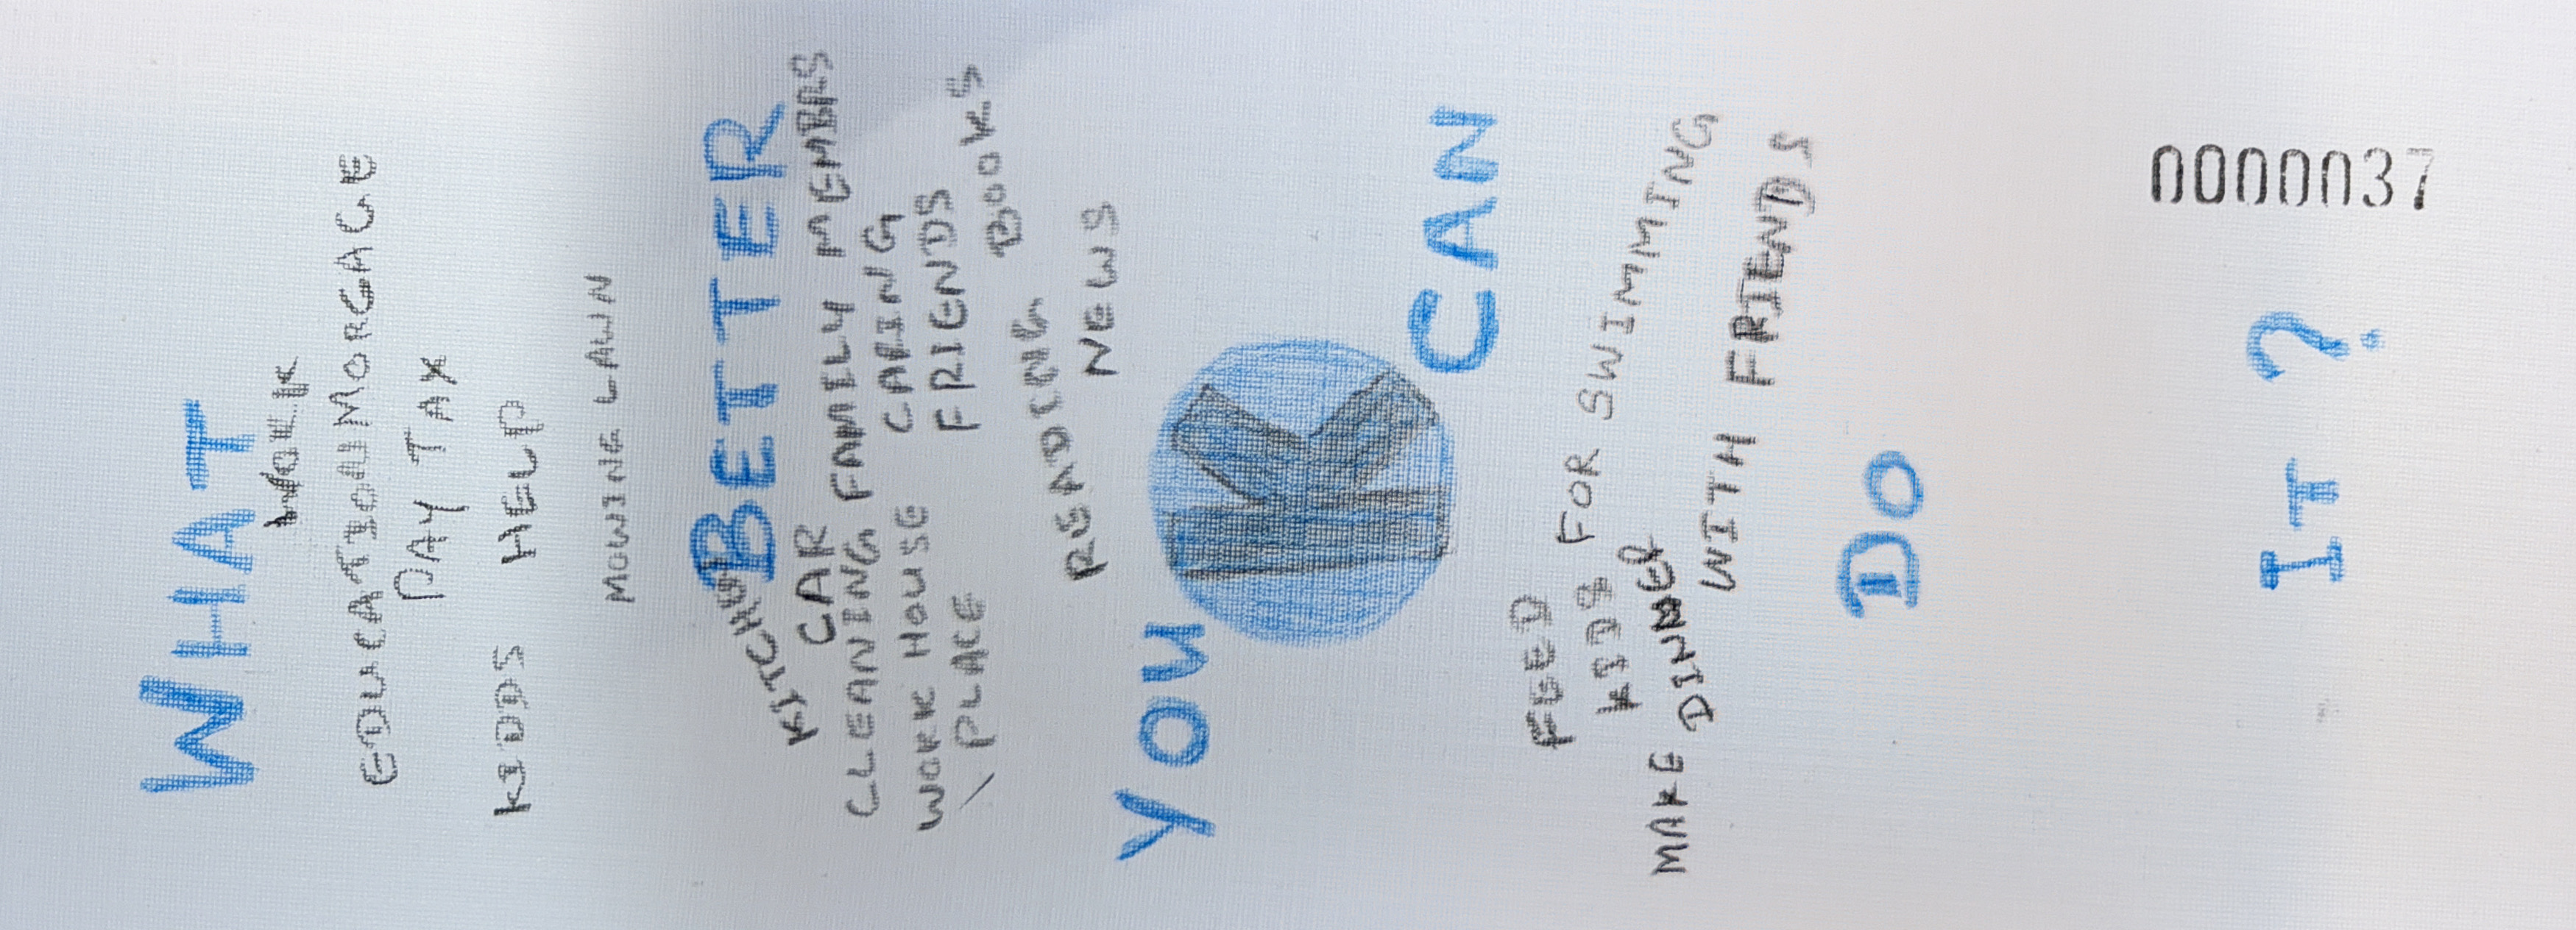 WHAT
WORK
EDUCATION MORGAGE
PAY TAX
KIDDS HELP
MOWING LAWN
BETTER
KITCHEN
CAR
CLEANING FAMILY MEMBRS
WORK HOUSE CARING
/ PLACE FRIENDS
READING BOOKS
NEWS
YOU
CAN
FEED
KIDS FOR SWIMMING
MAKE DINNER
WITH FRIENDS
DO
0000037
IT ?